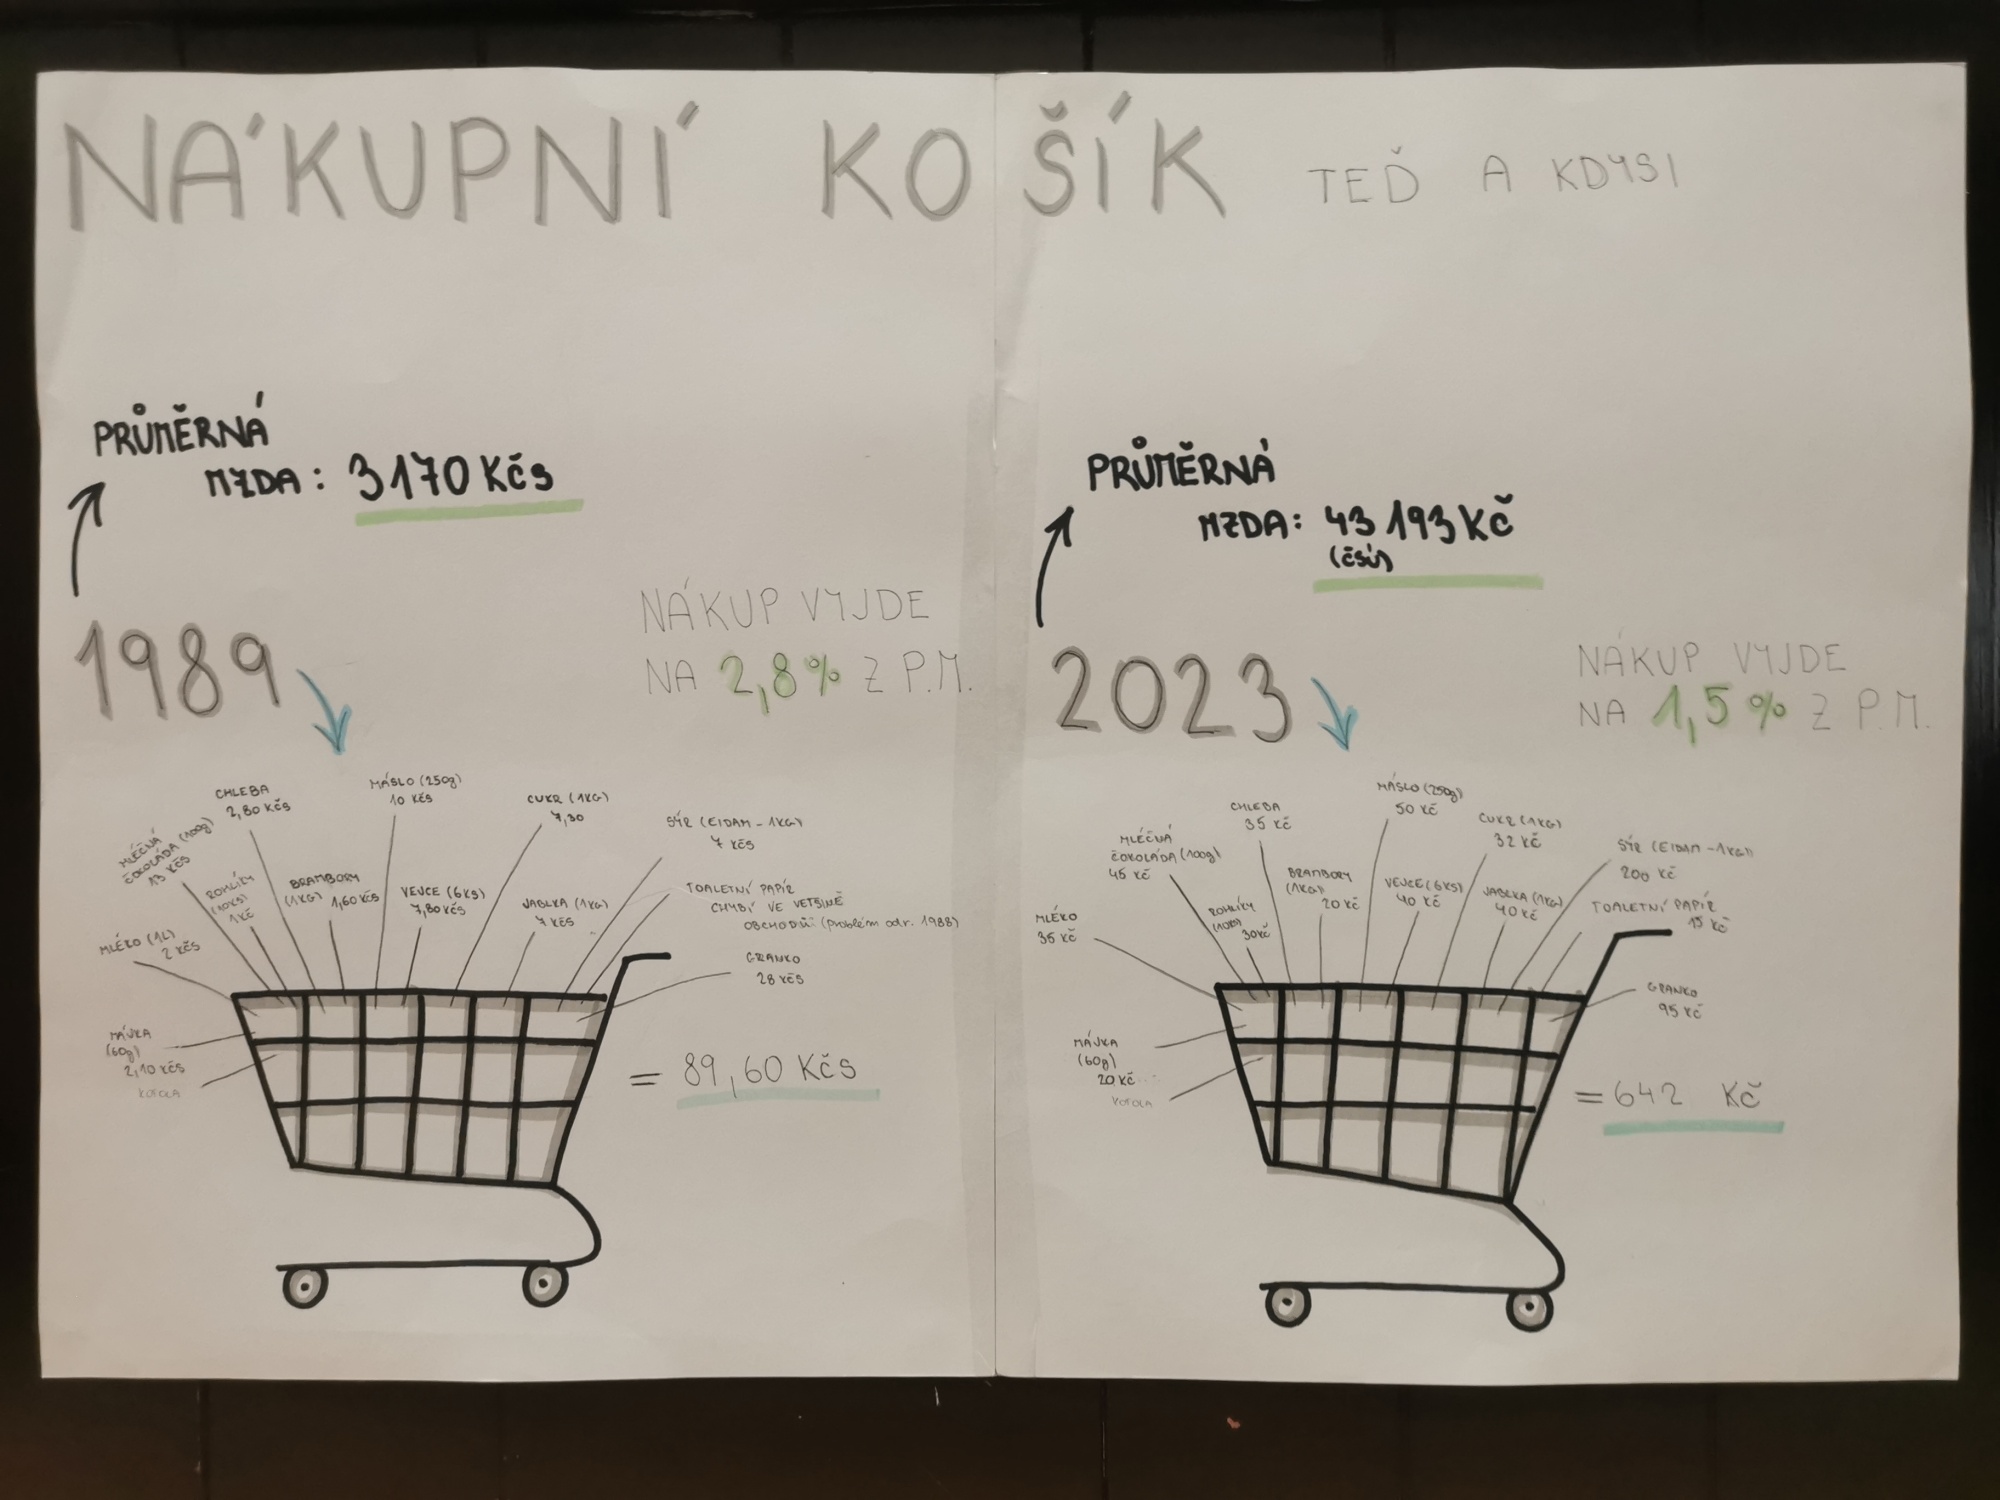 NÁKUPNÍ KOŠÍK TEĎ A KDYSI
PRŮMĚRNÁ
MZDA: 3170 Kčs
1989
NÁKUP VYJDE
NA 2,8% Z P.M.
CHLEBA
2,80 Kčs
MÁSLO (250g)
10 Kčs
CUKR (1KG)
7,30
SÝR (EIDAM - 1KG)
7 Kčs
MLÉČNÁ
ČOKOLÁDA (100g)
13 Kčs
ROHLÍKY
(10KS)
1 Kč
BRAMBORY
(1KG) 1,60 Kčs
VEJCE (6KS)
7,80 Kčs
JABLKA (1KG)
7 Kčs
TOALETNÍ PAPÍR
CHYBÍ VE VETŠINĚ
OBCHODŮ (problém od r. 1988)
MLÉKO (1L)
2 Kčs
GRANKO
28 Kčs
MÁJKA
(60g)
2,10 Kčs
KOFOLA
= 89,60 Kčs
PRŮMĚRNÁ
MZDA: 43 193 Kč
(ČSÚ)
2023
NÁKUP VYJDE
NA 1,5% Z P.M.
MÁSLO (250g)
50 Kč
CHLEBA
35 Kč
CUKR (1KG)
32 Kč
MLÉČNÁ
ČOKOLÁDA (100g)
45 Kč
SÝR (EIDAM - 1KG)
200 Kč
BRAMBORY
(1KG)
20 Kč
VEJCE (6KS)
40 Kč
JABLKA (1KG)
40 Kč
ROHLÍKY
(10KS)
30 Kč
TOALETNÍ PAPÍR
15 Kč
MLÉKO
35 Kč
GRANKO
95 Kč
MÁJKA
(60g)
20 Kč
KOFOLA
= 642 Kč